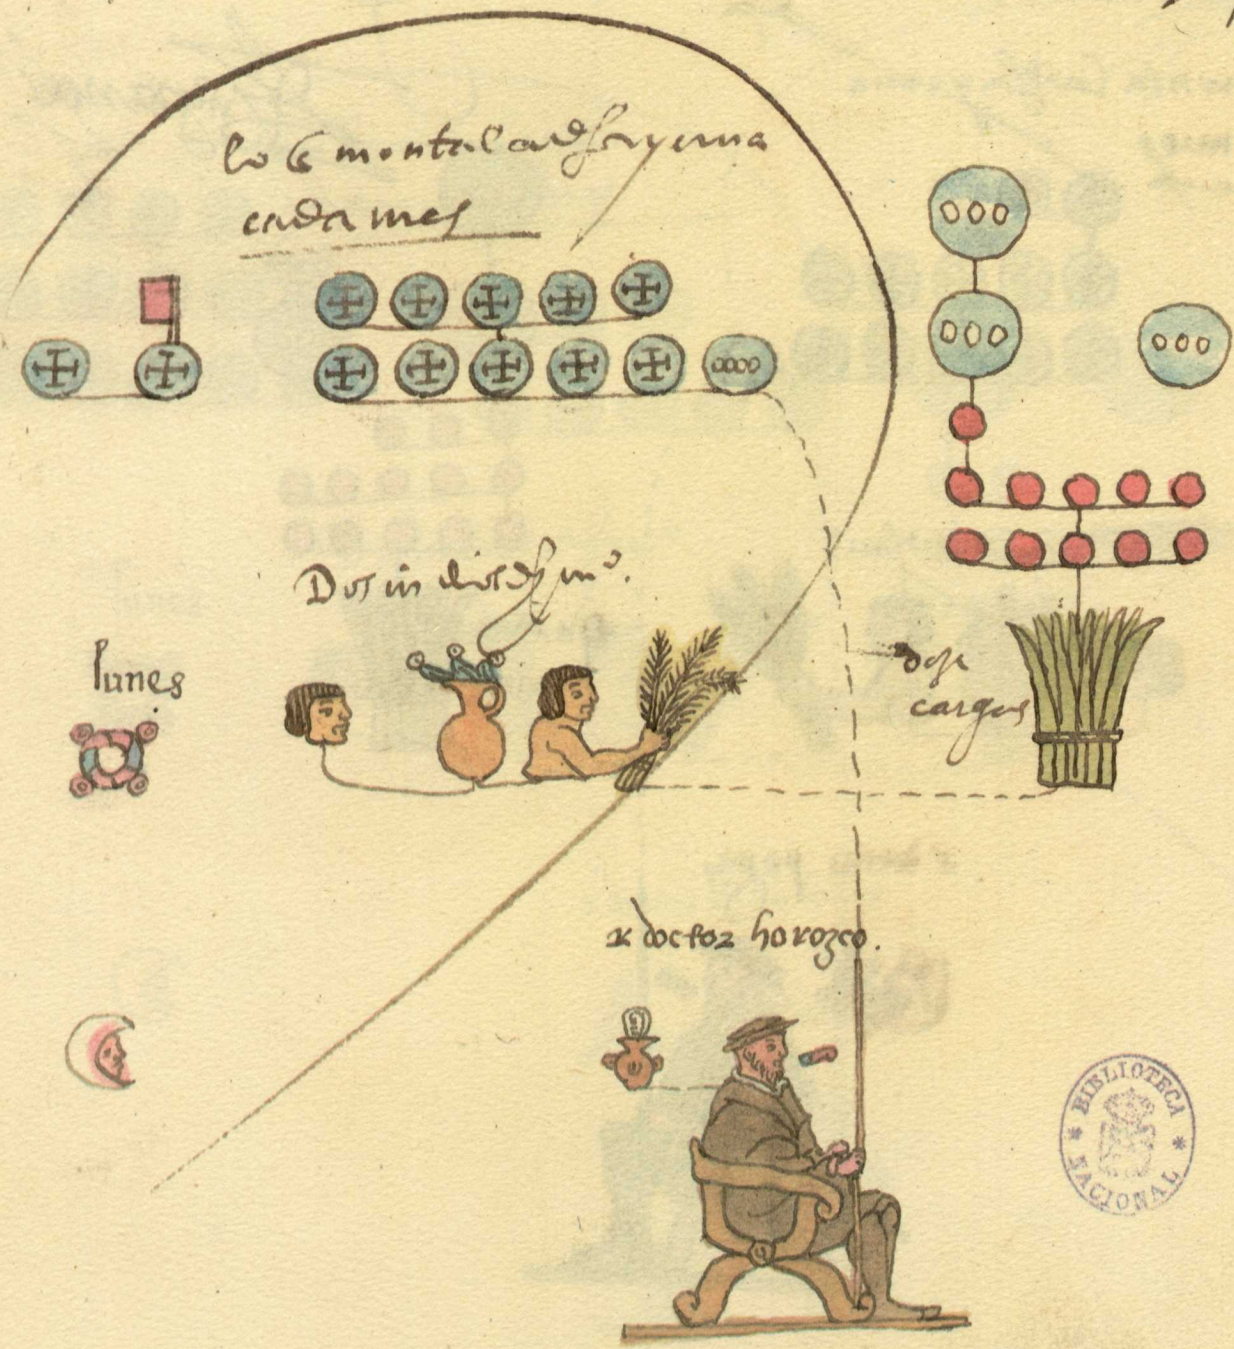 lo q montal
cada mes
Dos indios de
lunes
dose
cargas
doctor horozco.
BIBLIOTECA
NACIONAL